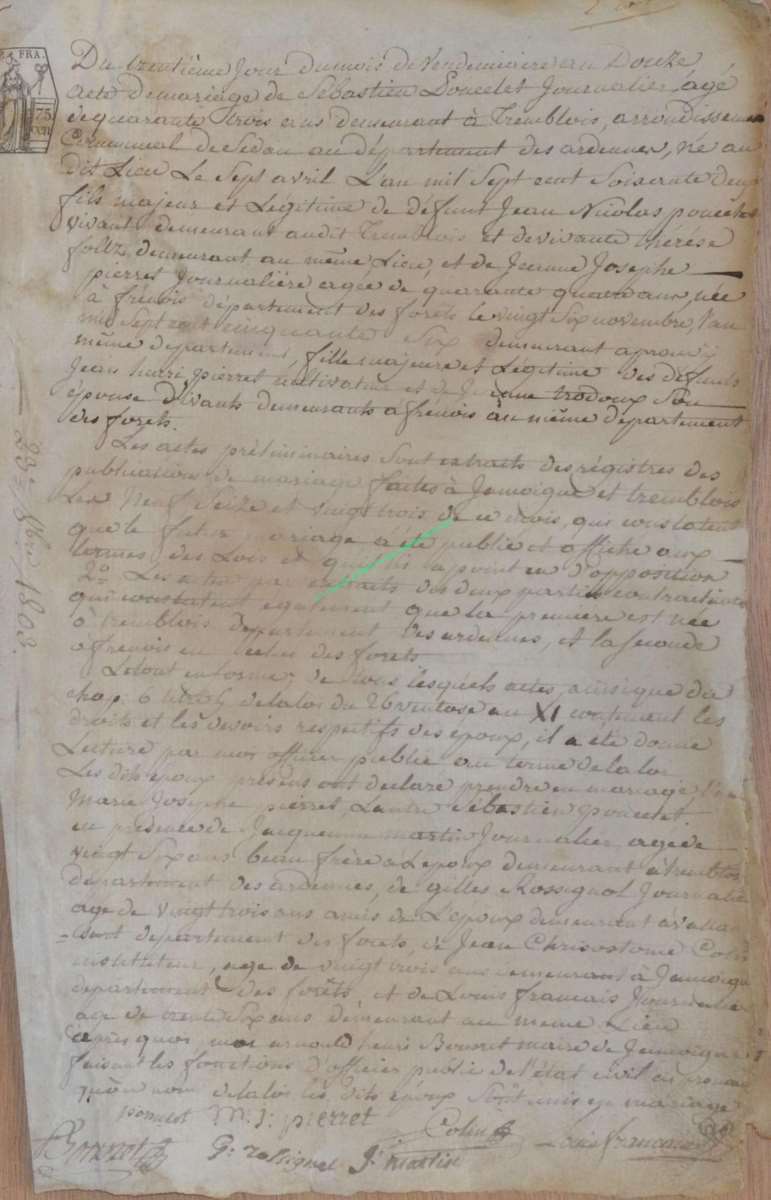 FRA.
75
Du trentième Jour du mois de Vendemiaire an Douze
acte de mariage de Sébastien Poncelet Journalier, agé
de quarante trois ans demeurant à Tremblois, arrondissement
Communal de Sedan au département des ardennes, né au
dit Lieu Le Sept avril L'an mil Sept cent Soixante deux
fils majeur et Legitime de défunt Jean Nicolas poncelet
vivant demeurant audit Tremblois et devivante thérèse
foltz, demeurant au même Lieu, et de Jeanne Josephe
pierret Journalière agée de quarante quatre ans, née
à frénois département des forêts le vingt Six novembre, l'an
mil Sept cent cinquante Six demeurant a
même departement, fille majeure et Légitime des défunts
Jean henri pierret cultivateur et de Jeanne trodoux Son
épouse vivants demeurants à frenois au même département
des forets.
Les actes préliminaires Sont extraits des régistres des
publications de mariage faites à Jamoigne et tremblois
Les Neuf Seize et vingt trois de ce mois, qui constatent
que le futur mariage a été publié et affiché aux
termes des Lois et qu'il n'y a point eu d'opposition
2.º Les actes par extraits des deux parties contractantes
qui constatent également que la première est née
à tremblois département des ardennes, et la seconde
à frenois en celui des forets
Letout en forme; de tous lesquels actes, ainsi que du
chap. 6 titre 5 delaloi du 26 ventose an XI contenant les
droits et les devoirs respectifs des epoux, il a été donné
Lecture par moi officier public au terme de la loi
Les dits époux présens ont déclaré prendre en mariage l'un
Marie Josephe pierret, L'autre Sébastien Poncelet
en présence de martin Journalier, agé de
vingt Six ans beau frère a Lepoux demeurant à tremblois
département des ardennes, de gilles Rossignol Journalier
agé de vingt trois ans amis de L'epoux demeurant a
departement des forets, de Jean Chrisostome Colin
instituteur, agé de vingt trois ans demeurant à Jamoigne
departement des forêts, et de Louis francois Journalier
agé de trente Six ans demeurant au meme Lieu
après quoi, moi arnould henri Bonvret maire de Jamoigne
faisant les fonctions d'officier public de l'état civil ai prononcé
qu'au nom delaloi les dits époux Sont unis en mariage
poncelet M: J: pierret
Colin
G: rossignol J: martin Louis francois
1803